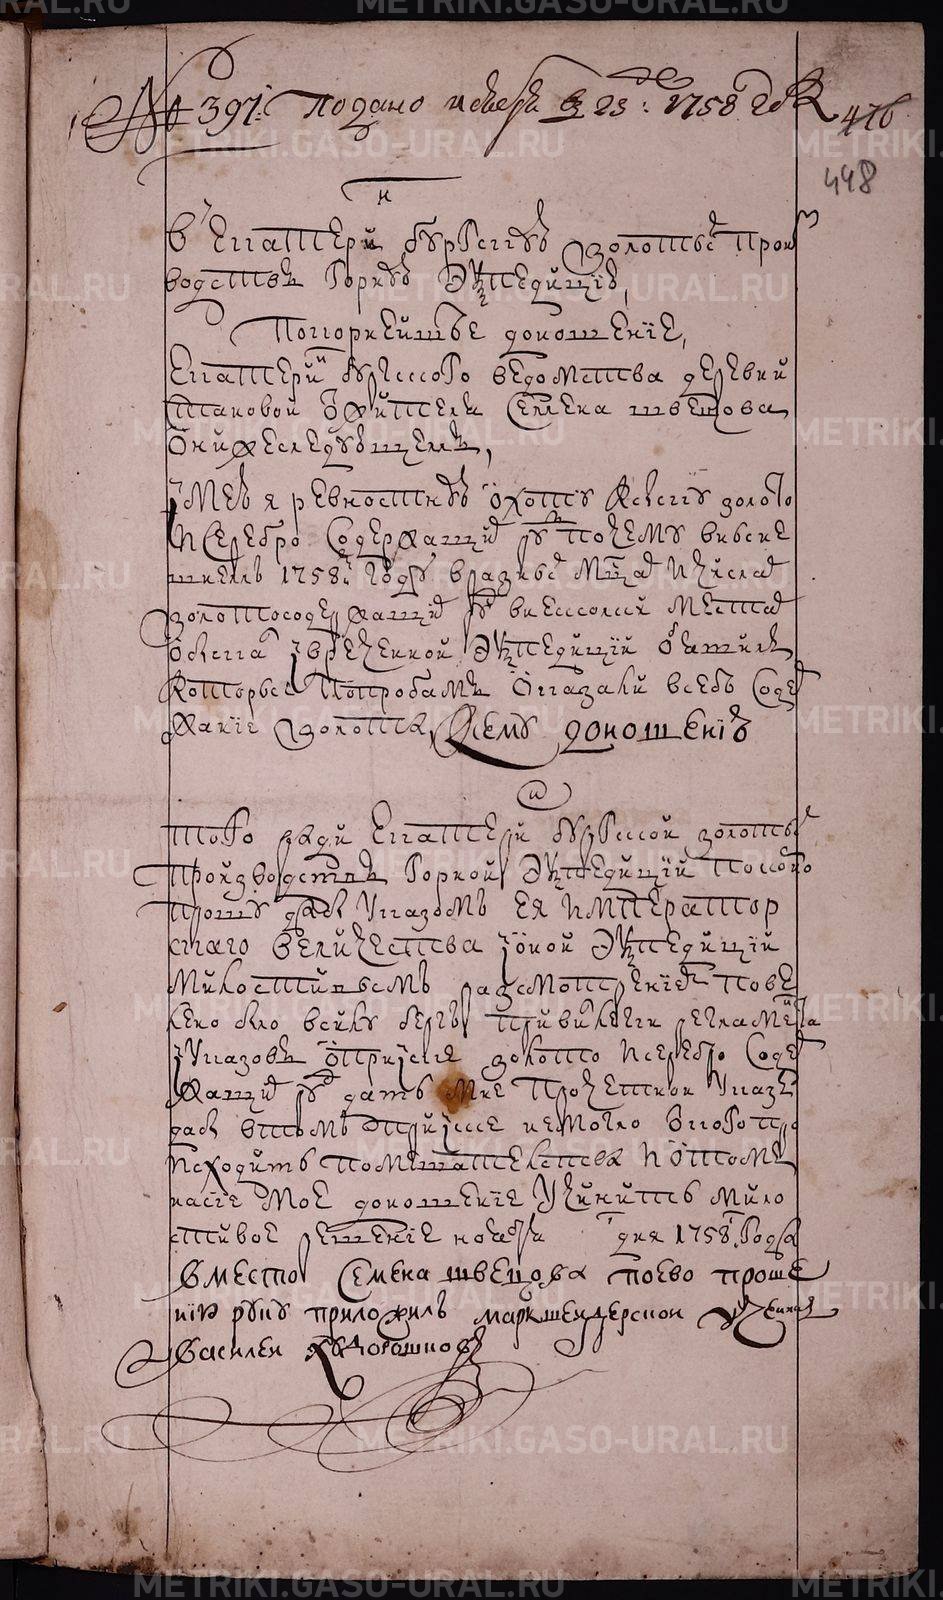 № 397. Подано ноября в 23 д: 1758 году
476
448
В Екатеринбургскую золотых произ
водств горную экспедицию,
Покорнейшее доношение,
Екатеринбургского ведомства деревни
Становой жителя Семена Швецова
О нижеследующем,
Имев я ревностную охоту к сыску золото
и серебро содержащих руд почему в ныне
шнем 1758м году в разных мцах и числах
золотосодержащих руд в нескольких местах
обыска и в реченной экспедиции объявил
которые по пробам оказали в себе содер
жание золота, К сему доношению
Того ради Екатеринбургской золотых
производств горной экспедиции покорно
прошу дабы указом ея император
скаго величества и оной экспедиции
милостивым разсмотрением пове
лено было в силу берг привилегии регламента
и указов о прииске золото и серебро содер
жащих руд дать мне прочетной указ
дабы в том прииске не могло в кого про
исходить помешательства и о том
на сие мое доношение учинить мило
стивое решение ноября дня 1758 года
Вместо Семена Швецова по ево проше
нию руку приложил маркшейдерской ученик
Василей Худорошков